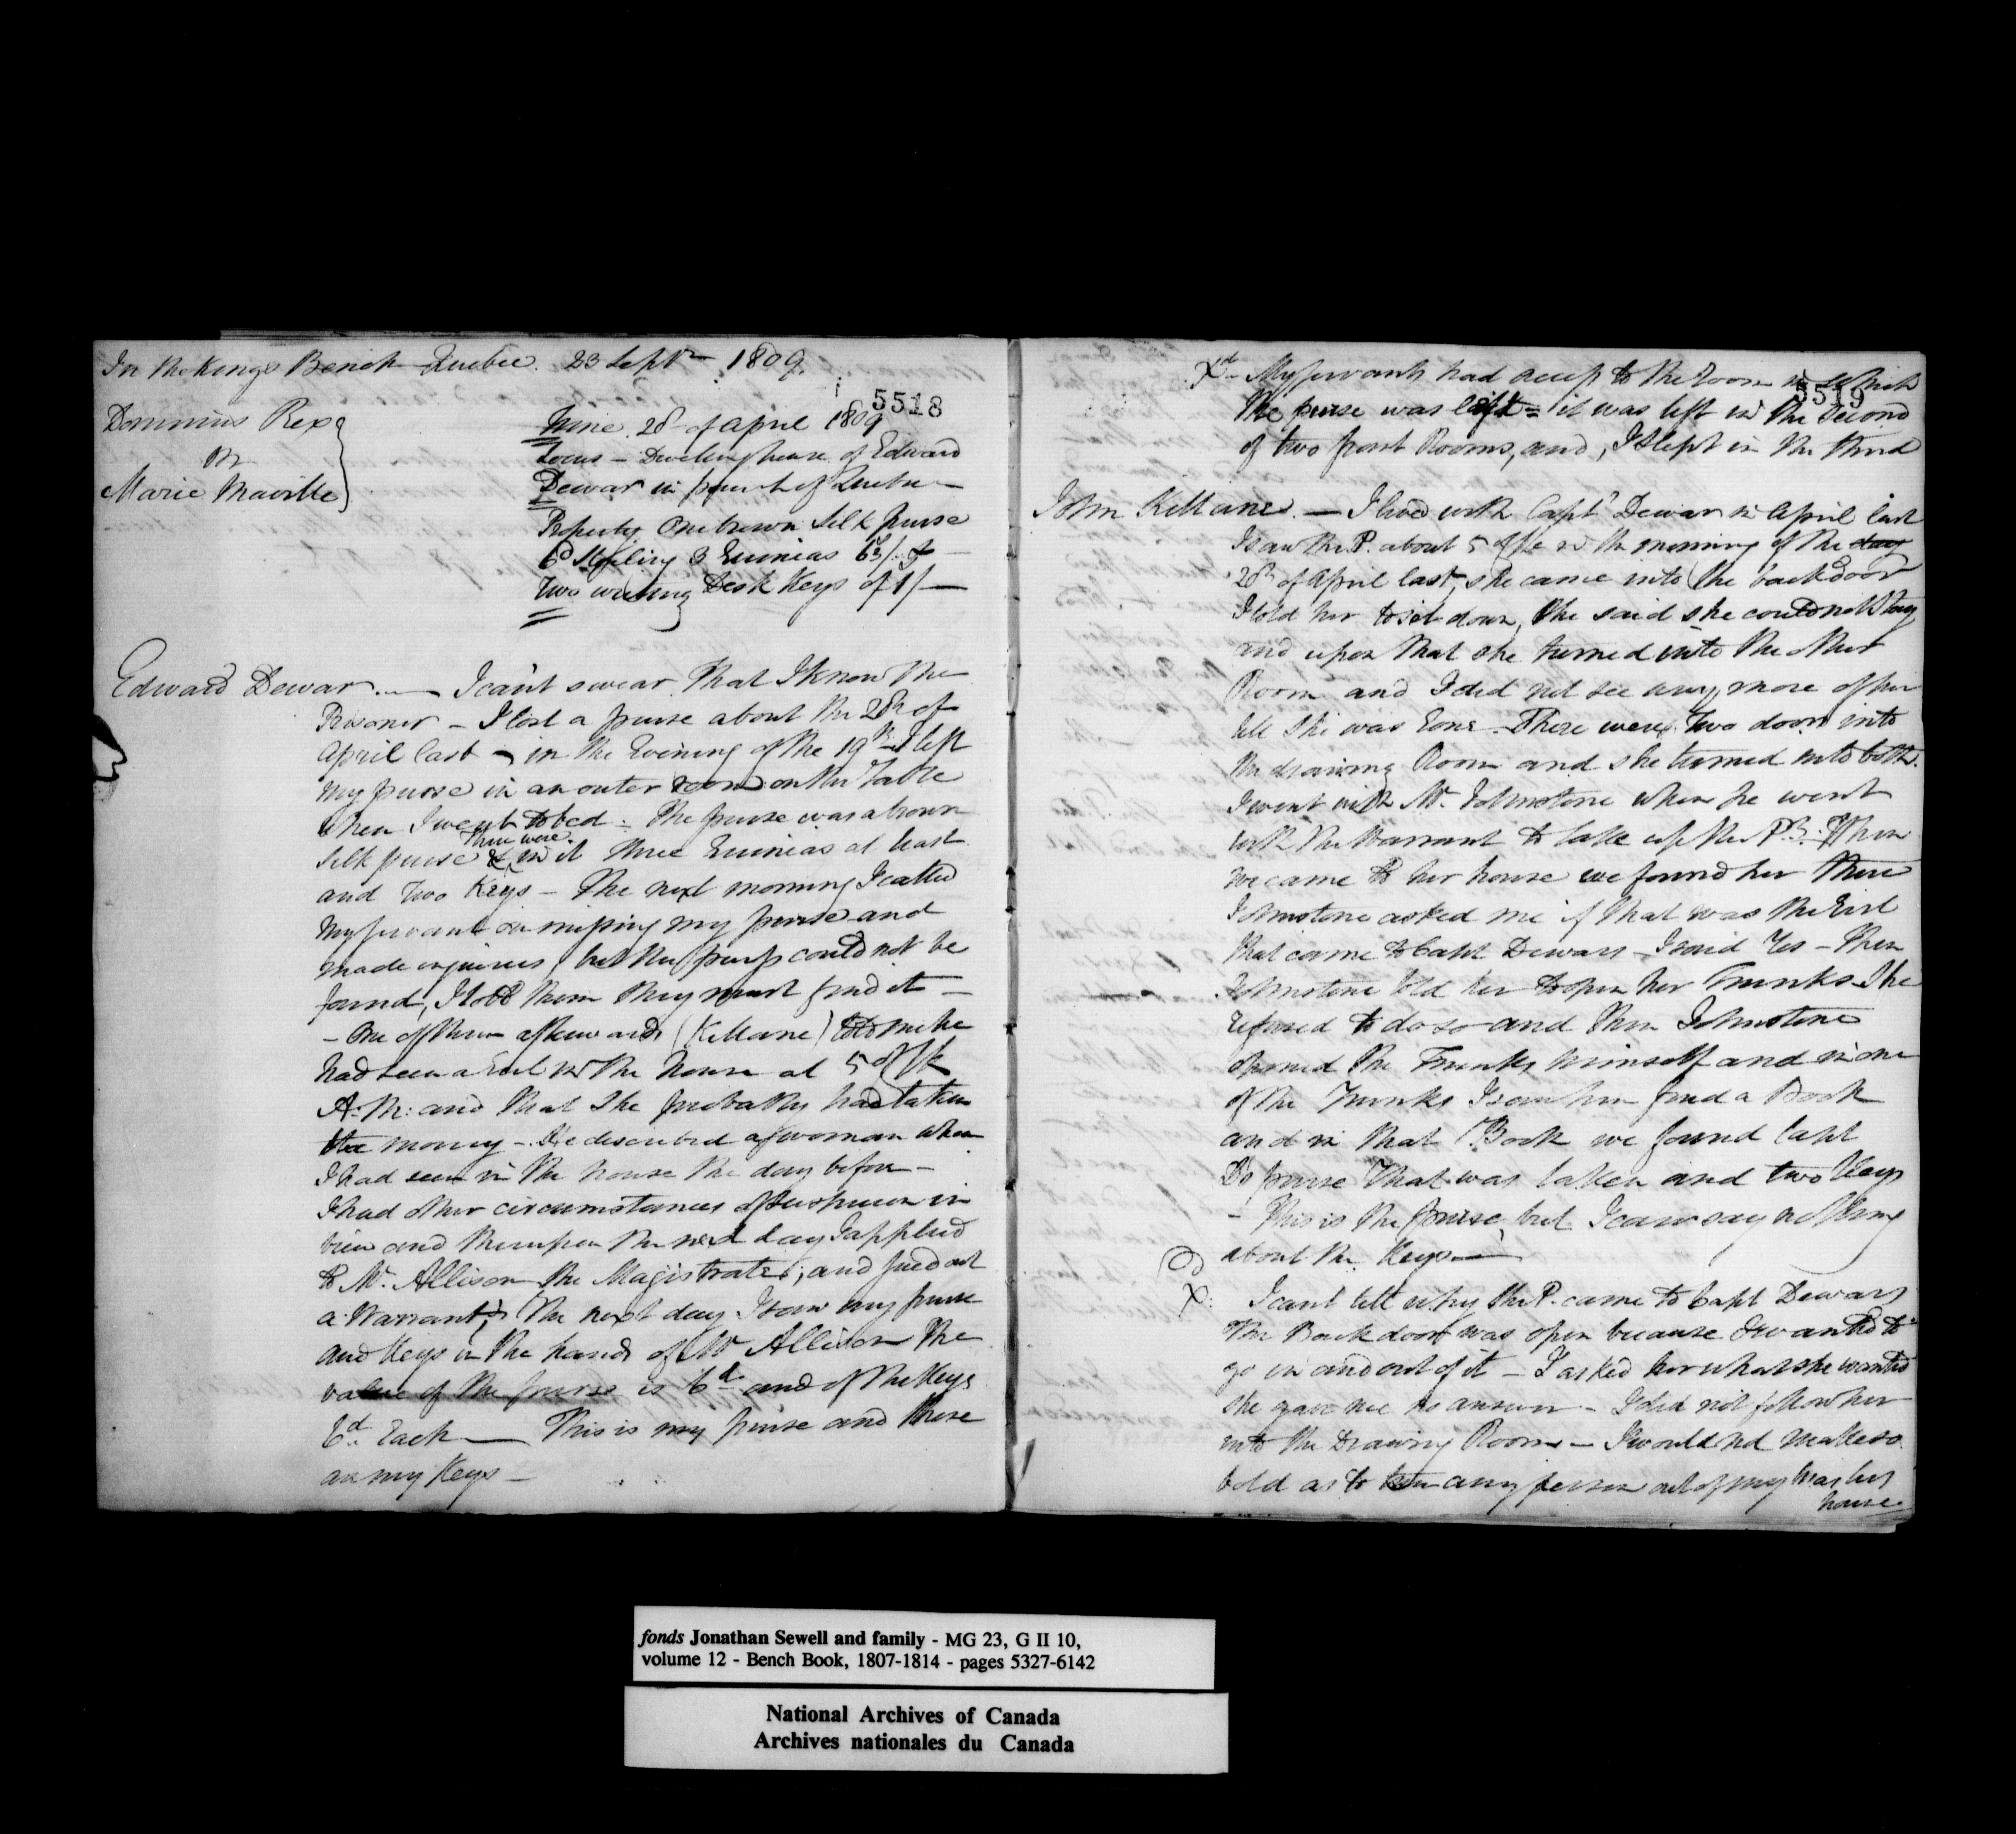 In the Kings Bench Quebec. 23 Septr 1809.
5518
Dominus Rex
vs
Marie Maville
Time. 20 of April 1809
Locus — Dwelling house of Edward
Dewar in parish of Quebec —
Property One brown Silk purse
6d Sterling 3 Guineas 63/.
Two writing Desk Keys of 1/ —
Edward Dewar. — I can't swear that I know the
Prisoner — I lost a purse about the 20th of
April last — in the Evening of the 19th I left
my purse in an outer room on the Table
when I went to bed. The purse was a brown
There were
silk purse & in it three Guineas at least
and Two Keys — The next morning I called
my servants on missing my purse and
made inquiries, but the purse could not be
found, I told them they must find it —
— One of them afterwards (Killane) told me he
had seen a Girl in the house at 5 o'Clk
A: M: and that she probably had taken
the money — He described a woman whom
I had seen in the house the day before —
I had other circumstances of suspicion in
view and thereupon the next day I applied
to Mr. Allison the Magistrate; and sued out
a Warrant; The next day I saw my purse
and Keys in the hands of Mr Allison The
value of the purse is 6d and of the Keys
6d. Each — This is my purse and these
are my Keys —
Xd — My servants had access to the room in which
5519
the purse was left = it was left in the second
of two front Rooms, and, I slept in the third
John Killane. — I lived with Capt Dewar in April last
I saw the P. about 5 o'Cl in the morning of the day
20th of April last, she came into the back door
I told her to sit down, she said she could not stay
and upon that she turned into the other
Room and I did not see any more of her
till she was Gone — There were two doors into
the drawing Room and she turned into both.
I went with Mr. Johnstone when he went
with the Warrant to take up the Pr. When
we came to her house we found her there
Johnstone asked me if that was the Girl
that came to Capt Dewars — I said Yes — Then
Johnstone told her to open her Trunks. She
refused to do so and then Johnstone
opened the Trunks himself and in one
of the Trunks I saw him find a Book
and in that Book we found Capt
D's purse that was taken and two Keys
— This is the purse, but I can say nothing
about the Keys —
X: I cant tell why the P. came to Capt Dewars
The Back door was open because I wanted to
go in and out of it — I asked her what she wanted
she gave me no answer — I did not follow her
into the Drawing Room — I would not make so
bold as to turn any person out of my Masters
house.
fonds Jonathan Sewell and family - MG 23, G II 10,
volume 12 - Bench Book, 1807-1814 - pages 5327-6142
National Archives of Canada
Archives nationales du Canada